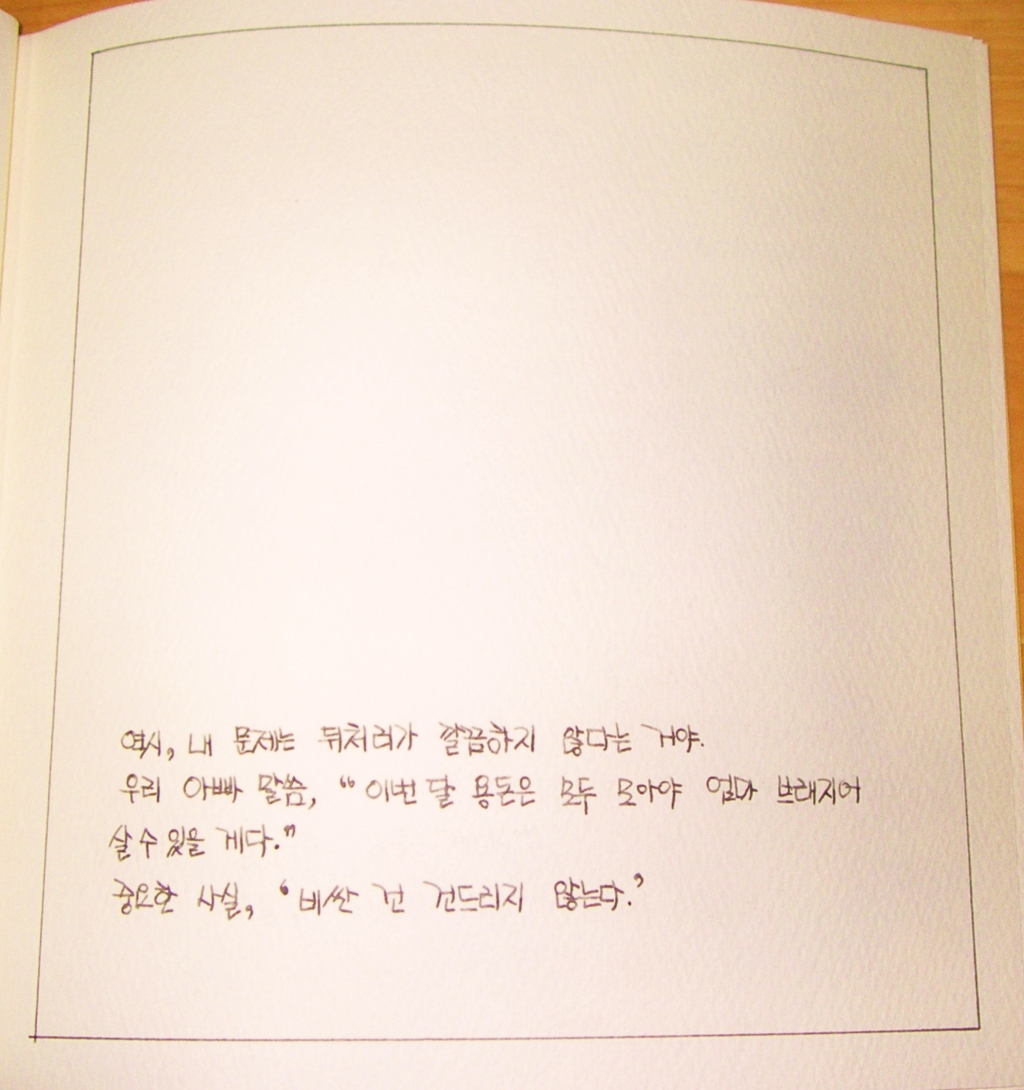 역시, 내 문제는 뒤처리가 깔끔하지 않다는 거야.
우리 아빠 말씀, “이번 달 용돈은 모두 모아야 엄마 브래지어
살 수 있을 게다.”
중요한 사실, ‘비싼 건 건드리지 않는다.’